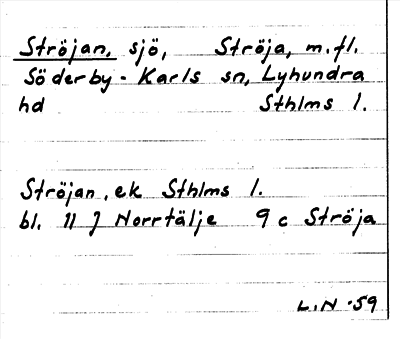 Ströjan, sjö, Ströja, m.fl.
Söderby-Karls sn, Lyhundra
hd Sthlms l.
Ströjan, ek Sthlms l.
bl. 11 J Norrtälje 9 c Ströja
L.N -59